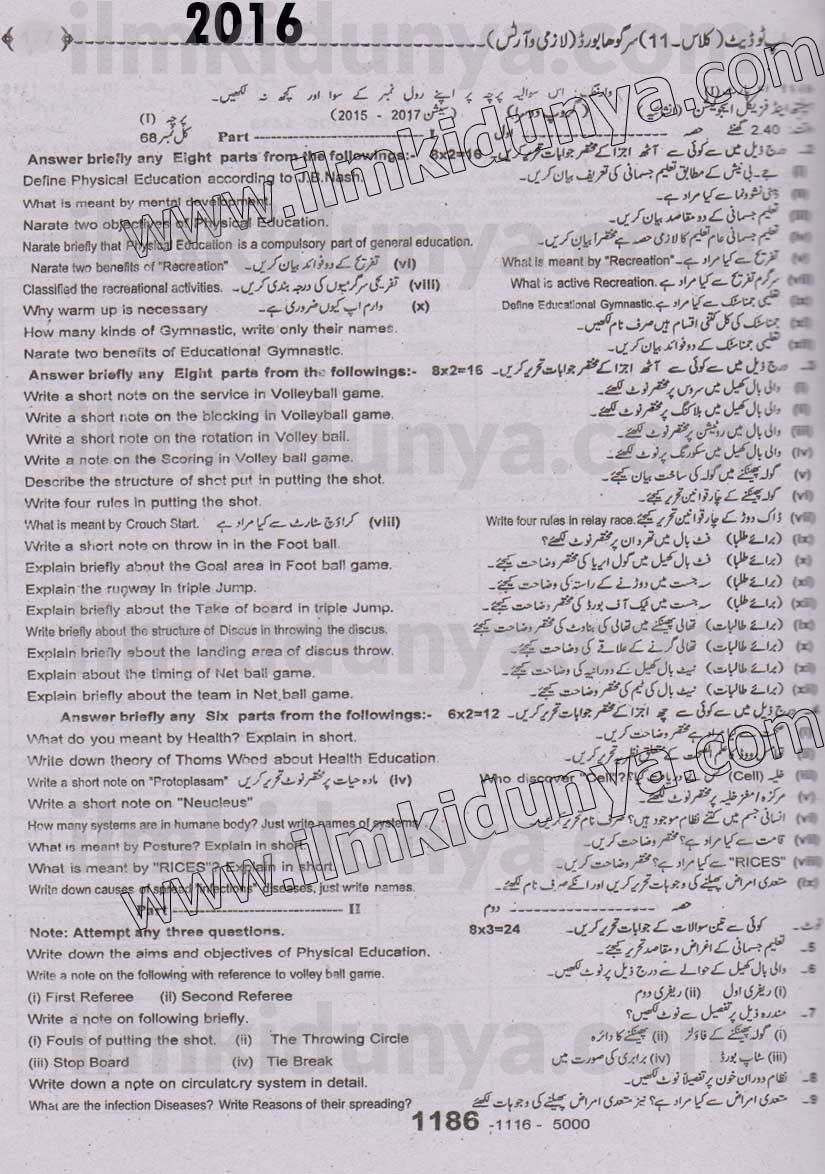 2016
پ ٹو ڈیٹ (کلاس ۔ 11) سرگودھا بورڈ (لازمی و آرٹس)
وارننگ: اس سوالیہ پرچہ پر اپنے رول نمبر کے سوا اور کچھ نہ لکھیں۔
فزیکل ایجوکیشن (سیشن 2015 - 2017) پرچہ (I)
2.40 گھنٹے حصہ اول Part ---- I کل نمبر 68
Answer briefly any Eight parts from the followings:- 8x2=16 درج ذیل میں سے کوئی سے آٹھ اجزا کے مختصر جوابات تحریر کریں۔
Define Physical Education according to J.B.Nash. جے۔بی نیش کے مطابق تعلیم جسمانی کی تعریف بیان کریں۔
What is meant by mental development. ذہنی نشوونما سے کیا مراد ہے۔
Narate two objectives of Physical Education. تعلیم جسمانی کے دو مقاصد بیان کریں۔
Narate briefly that Physical Education is a compulsory part of general education. تعلیم جسمانی عام تعلیم کا لازمی حصہ ہے مختصرا بیان کریں۔
Narate two benefits of "Recreation" تفریح کے دو فوائد بیان کریں۔ (vi) What is meant by "Recreation" تفریح سے کیا مراد ہے۔ (v)
Classified the recreational activities. تفریحی سرگرمیوں کی درجہ بندی کریں۔ (viii) What is active Recreation. سرگرم تفریح سے کیا مراد ہے۔ (vii)
Why warm up is necessary وارم اپ کیوں ضروری ہے۔ (x) Define Educational Gymnastic. تعلیمی جمناسٹک سے کیا مراد ہے۔ (ix)
How many kinds of Gymnastic, write only their names. جمناسٹک کی کل کتنی اقسام ہیں صرف نام لکھیں۔ (xi)
Narate two benefits of Educational Gymnastic. تعلیمی جمناسٹک کے دو فوائد بیان کریں۔ (xii)
Answer briefly any Eight parts from the followings:- 8x2=16 درج ذیل میں سے کوئی سے آٹھ اجزا کے مختصر جوابات تحریر کریں۔
Write a short note on the service in Volleyball game. والی بال کھیل میں سروس پر مختصر نوٹ لکھئے۔ (i)
Write a short note on the blocking in Volleyball game. والی بال کھیل میں بلاکنگ پر مختصر نوٹ لکھئے۔ (ii)
Write a short note on the rotation in Volley ball. والی بال میں روٹیشن پر مختصر نوٹ لکھئے۔ (iii)
Write a note on the Scoring in Volley ball game. والی بال کھیل میں سکورنگ پر نوٹ لکھئے۔ (iv)
Describe the structure of shot put in putting the shot. گولہ پھینکنے میں گولہ کی ساخت بیان کیجئے۔ (v)
Write four rules in putting the shot. گولہ پھینکنے کے چار قوانین تحریر کیجئے۔ (vi)
What is meant by Crouch Start. کراؤچ سٹارٹ سے کیا مراد ہے (viii) Write four rules in relay race. ڈاک دوڑ کے چار قوانین تحریر کیجئے۔ (vii)
Write a short note on throw in in the Foot ball. (برائے طلبا) فٹ بال میں تھرو ان پر مختصر نوٹ لکھئے؟ (ix)
Explain briefly about the Goal area in Foot ball game. (برائے طلبا) فٹ بال کھیل میں گول ایریا کی مختصر وضاحت کیجئے۔ (x)
Explain the runway in triple Jump. (برائے طلبا) سہ جست میں دوڑنے کے راستہ کی وضاحت کیجئے۔ (xi)
Explain briefly about the Take of board in triple Jump. (برائے طلبا) سہ جست میں ٹیک آف بورڈ کی مختصر وضاحت کیجئے۔ (xii)
Write briefly about the structure of Discus in throwing the discus. (برائے طالبات) تھالی پھینکنے میں تھالی کی بناوٹ کی مختصر وضاحت کیجئے (ix)
Explain briefly about the landing area of discus throw. (برائے طالبات) تھالی گرنے کے علاقے کی وضاحت کیجئے۔ (x)
Explain about the timing of Net ball game. (برائے طالبات) نیٹ بال کھیل کے دورانیہ کی وضاحت کیجئے۔ (xi)
Explain briefly about the team in Net ball game. (برائے طالبات) نیٹ بال کی ٹیم کی مختصر وضاحت کیجئے۔ (xii)
Answer briefly any Six parts from the followings:- 6x2=12 درج ذیل میں سے کوئی سے چھ اجزا کے مختصر جوابات تحریر کریں۔
What do you meant by Health? Explain in short. صحت سے کیا مراد ہے؟ مختصر وضاحت کریں۔
Write down theory of Thoms Wood about Health Education.
Write a short note on "Protoplasam" مادہ حیات پر مختصر نوٹ تحریر کریں (iv) Who discover "Cell"? خلیہ (Cell) کس نے دریافت کیا؟ (iii)
Write a short note on "Neucleus" مرکزہ/مغز خلیہ پر مختصر نوٹ لکھئے۔ (v)
How many systems are in humane body? Just write names of systems. انسانی جسم میں کتنے نظام موجود ہیں؟ صرف نام تحریر کریں۔ (vi)
What is meant by Posture? Explain in short. قامت سے کیا مراد ہے؟ مختصر وضاحت کریں۔ (vii)
What is meant by "RICES"? Explain in short. "RICES" سے کیا مراد ہے؟ مختصر وضاحت کریں۔ (viii)
Write down causes of spread "Infections" diseases, just write names. متعدی امراض پھیلنے کی وجوہات تحریر کریں اور انکے صرف نام لکھئے۔ (ix)
Part ---- II حصہ ---- دوم
Note: Attempt any three questions. 8x3=24 کوئی سے تین سوالات کے جوابات تحریر کریں۔ نوٹ۔
Write down the aims and objectives of Physical Education. تعلیم جسمانی کے اغراض و مقاصد تحریر کیجئے۔ 5۔
Write a note on the following with reference to volley ball game. والی بال کھیل کے حوالے سے درج ذیل پر نوٹ لکھیں۔ 6۔
(i) First Referee (ii) Second Referee (i) ریفری اول (ii) ریفری دوم
Write a note on following briefly. مندرہ ذیل پر تفصیل سے نوٹ لکھیں؟ 7۔
(i) Fouls of putting the shot. (ii) The Throwing Circle (i) گولہ پھینکنے کے فاؤلز (ii) پھینکنے کا دائرہ
(iii) Stop Board (iv) Tie Break (iii) سٹاپ بورڈ (iv) برابری کی صورت میں
Write down a note on circulatory system in detail. نظام دوران خون پر تفصیلاً نوٹ لکھیں۔ 8۔
What are the infection Diseases? Write Reasons of their spreading? متعدی امراض سے کیا مراد ہے؟ نیز متعدی امراض پھیلنے کی وجوہات لکھئے 9۔
1186 -1116 - 5000
www.ilmkidunya.com
www.ilmkidunya.com
ilmkidunya.com